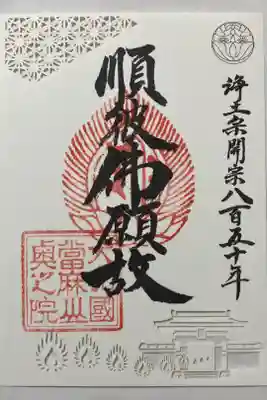 浄土宗開宗八百五十年
順彼佛願故
國
當麻山
奥之院